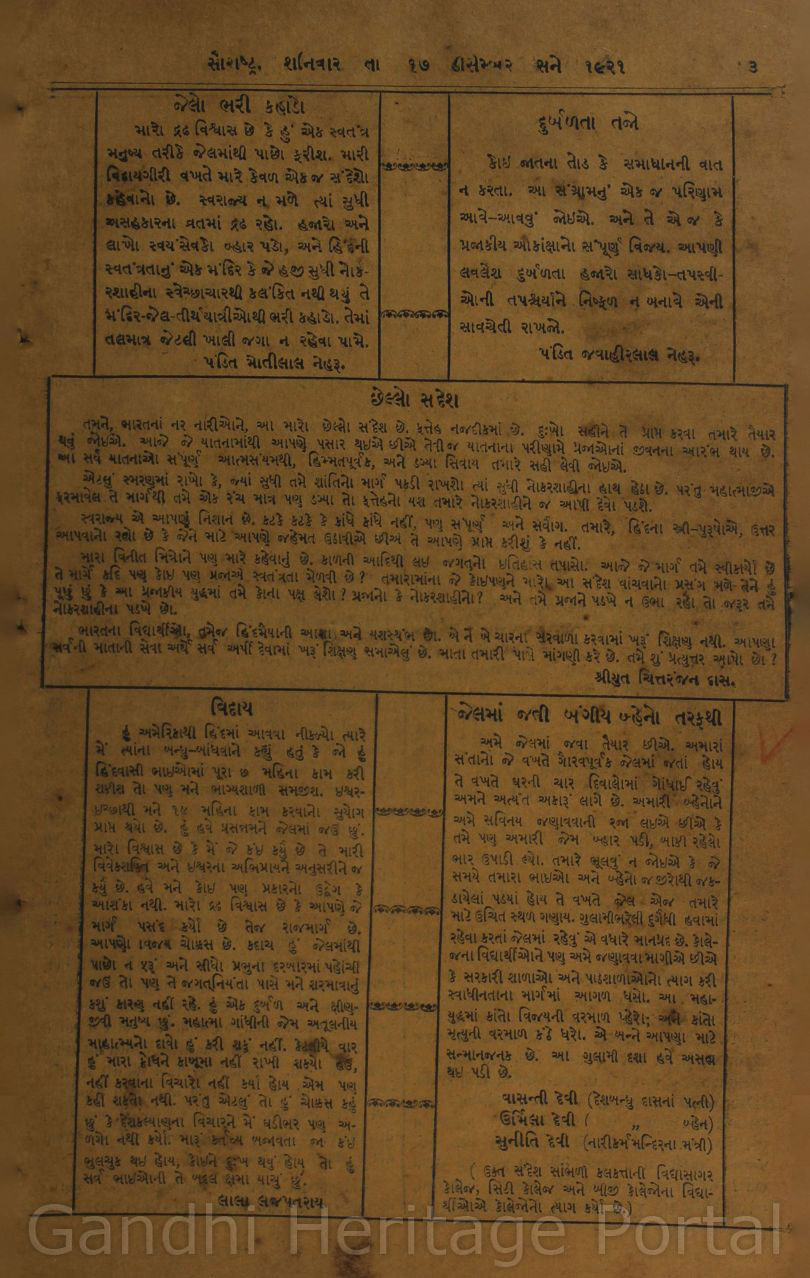 સૌરાષ્ટ્ર, શનિવાર તા ૧૭ ડીસેમ્બર સને ૧૯૨૧ ૩
જેલો ભરી કહાડો
મારો દ્રઢ વિશ્વાસ છે કે હું એક સ્વતંત્ર
મનુષ્ય તરીકે જેલમાંથી પાછો ફરીશ. મારી
વિદાયગીરી વખતે મારે કેવળ એક જ સંદેશો
કહેવાનો છે. સ્વરાજ્ય ન મળે ત્યાં સુધી
અસહકારના વ્રતમાં દ્રઢ રહો. હજારો અને
લાખો સ્વયંસેવકો બ્હાર પડો, અને હિંદની
સ્વતંત્રતાનું એક મંદિર કે જે હજી સુધી નોક-
રશાહીના સ્વેચ્છાચારથી કલંકિત નથી થયું તે
મંદિર-જેલ-તીર્થયાત્રીઓથી ભરી કહાડો. તેમાં
તલમાત્ર જેટલી ખાલી જગા ન રહેવા પામે.
પંડિત મોતીલાલ નેહરૂ.
દુર્બળતા તજો
કોઇ જાતના તોડ કે સમાધાનની વાત
ન કરતા. આ સંગ્રામનું એક જ પરિણામ
આવે-આવવું જોઇએ. અને તે એ જ કે
પ્રજાકીય આકાંક્ષાનો સંપૂર્ણ વિજય. આપણી
લવલેશ દુર્બળતા હજારો સાધકો-તપસ્વી-
ઓની તપશ્ચર્યાને નિષ્ફળ ન બનાવે એની
સાવચેતી રાખજો.
પંડિત જવાહીરલાલ નેહરૂ.
છેલ્લો સંદેશ
તમને, ભારતનાં નર નારીઓને, આ મારો છેલ્લો સંદેશ છે. ફત્તેહ નજદીકમાં છે. દુઃખો સહીને તે પ્રાપ્ત કરવા તમારે તૈયાર
થવું જોઇએ. આજે જે યાતનામાંથી આપણે પસાર થઇએ છીએ તેવીજ યાતનાના પરીણામે પ્રજાઓનાં જીવનના આરંભ થાય છે.
આ સર્વ યાતનાઓ સંપૂર્ણ આત્મસંયમથી, હિમ્મતપૂર્વક, અને ડગ્યા સિવાય તમારે સહી લેવી જોઇએ.
એટલું સ્મરણમાં રાખો કે, જ્યાં સુધી તમે શાંતિનો માર્ગ પકડી રાખશો ત્યાં સુધી નોકરશાહીના હાથ હેઠા છે. પરંતુ મહાત્માજીએ
ફરમાવેલ તે માર્ગથી તમે એક રંચ માત્ર પણ ડગ્યા તો ફત્તેહનો યશ તમારે નોકરશાહીને જ આપી દેવો પડશે.
સ્વરાજ્ય એ આપણું નિશાન છે. કટકે કટકે કે કાંધે કાંધે નહીં, પણ સંપૂર્ણ અને સર્વાંગ. તમારે, હિંદના સ્ત્રી-પુરૂષોએ, ઉત્તર
આપવાનો રહ્યો છે કે જેને માટે આપણે જહેમત ઉઠાવીએ છીએ તે આપણે પ્રાપ્ત કરીશું કે નહીં.
મારા વિનીત મિત્રોને પણ મારે કહેવાનું છે. કાળની આદિથી લઇ જગતનો ઇતિહાસ તપાસો. આજે જે માર્ગ તમે સ્વીકાર્યો છે
તે માર્ગે કદિ પણ કોઇ પણ પ્રજાએ સ્વતંત્રતા મેળવી છે? તમારામાંના જે કોઇપણને મારો આ સંદેશ વાંચવાનો પ્રસંગ મળે તેને હું
પૂછું છું કે આ પ્રજાકીય યુદ્ધમાં તમે કોના પક્ષ લેશો? પ્રજાનો કે નોકરશાહીનો? અને તમે પ્રજાને પડખે ન ઉભા રહો તો જરૂર તમે
નોકરશાહીના પડખે છો.
ભારતના વિદ્યાર્થીઓ, તમેજ હિંદમૈયાની આશા અને યશસ્થંભ છો. બે ને બે ચારના સરવાળા કરવામાં ખરૂં શિક્ષણ નથી. આપણા
સર્વની માતાની સેવા અર્થે સર્વ અર્પી દેવામાં ખરૂં શિક્ષણ સમાએલું છે. માતા તમારી પાસે માંગણી કરે છે. તમે શું પ્રત્યુત્તર આપો છો?
શ્રીયુત ચિત્તરંજન દાસ.
વિદાય
હું અમેરિકાથી હિંદમાં આવવા નીકળ્યો ત્યારે
મેં ત્યાંના બન્ધુ-બાંધવાને કહ્યું હતું કે જો હું
હિંદવાસી ભાઇઓમાં પૂરા છ મહિના કામ કરી
શકીશ તો પણ મને ભાગ્યશાળી સમજીશ. ઇશ્વર-
ઇચ્છાથી મને ૧૬ મહિના કામ કરવાનો સુયોગ
પ્રાપ્ત થયો છે. હું હવે પ્રસન્નમને જેલમાં જઉં છું.
મારો વિશ્વાસ છે કે મેં જે કંઇ કર્યું છે તે મારી
વિવેકશક્તિ અને ઇશ્વરના અભિપ્રાયને અનુસરીને જ
કર્યું છે. હવે મને કોઇ પણ પ્રકારનો ઉદ્વેગ કે
આશંકા નથી. મારો દ્રઢ વિશ્વાસ છે કે આપણે જે
માર્ગ પસંદ કર્યો છે તેજ રાજમાર્ગ છે.
આપણો વિજય ચોક્કસ છે. કદાચ હું જેલમાંથી
પાછો ન ફરૂં અને સીધો પ્રભુના દરબારમાં પહોંચી
જઉં તો પણ તે જગતનિયંતા પાસે મને શરમાવાનું
કશું કારણ નહીં રહે. હું એક દુર્બળ અને ક્ષીણ-
જીવી મનુષ્ય છું. મહાત્મા ગાંધીની જેમ અતૂલનીય
માહાત્મ્યનો દાવો હું કરી શકું નહીં. કેટલીયે વાર
હું મારા ક્રોધને કાબૂમાં નહીં રાખી શક્યો હઉં,
નહીં કરવાના વિચારો નહીં કર્યા હોય એમ પણ
કહી શકતો નથી. પરંતુ એટલું તો હું ચોક્કસ કહું
છું કે દેશકલ્યાણના વિચારને મેં ઘડીભર પણ અ-
ળગો નથી કર્યો. મારૂં કર્તવ્ય બજાવતા જો કંઇ
ભુલચુક થઇ હોય, કોઇને દુઃખ થયું હોય તો હું
સર્વ ભાઇઓની તે બદ્દલ ક્ષમા યાચું છું.
લાલા લજપતરાય
જેલમાં જતી બંગીય બ્હેનો તરફથી
અમે જેલમાં જવા તૈયાર છીએ. અમારાં
સંતાનો જે વખતે ગૌરવપૂર્વક જેલમાં જતાં હોય
તે વખતે ઘરની ચાર દિવાલોમાં ગોંધાઈ રહેવું
અમને અત્યંત અકારૂં લાગે છે. અમારી બ્હેનોને
અમે સવિનય જણાવવાની રજા લઇએ છીએ કે
તમે પણ અમારી જેમ બ્હાર પડી, બાકી રહેલો
ભાર ઉપાડી લ્યો. તમારે ભૂલવું ન જોઇએ કે જે
સમયે તમારા ભાઇઓ અને બ્હેનો જંજીરોથી જક-
ડાયેલાં પડયાં હોય તે વખતે જેલ એજ તમારે
માટે ઉચિત સ્થળ ગણાય. ગુલામીભરેલી દુર્ગંધી હવામાં
રહેવા કરતાં જેલમાં રહેવું એ વધારે માનપ્રદ છે. કોલે-
જના વિદ્યાર્થીઓને પણ અમે જણાવવા માગીએ છીએ
કે સરકારી શાળાઓ અને પાઠશાળાઓનો ત્યાગ કરી
સ્વાધીનતાના માર્ગમાં આગળ ધસો. આ મહા-
યુદ્ધમાં કાંતો વિજયની વરમાળ પ્હેરો; અને કાંતો
મૃત્યુની વરમાળ કંઠે ધરો. એ બન્ને આપણા માટે
સન્માનજનક છે. આ ગુલામી દશા હવે અસહ્ય
થઇ પડી છે.
વાસન્તી દેવી (દેશબન્ધુ દાસનાં પત્ની)
ઉર્મિલા દેવી ( „ બ્હેન)
સુનીતિ દેવી (નારીકર્મમન્દિરના મંત્રી)
( ઉક્ત સંદેશ સાંભળી કલકત્તાની વિદ્યાસાગર
કોલેજ, સિટી કોલેજ અને બીજી કોલેજોના વિદ્યા-
ર્થીઓએ કોલેજોનો ત્યાગ કર્યો છે.)
Gandhi Heritage Portal